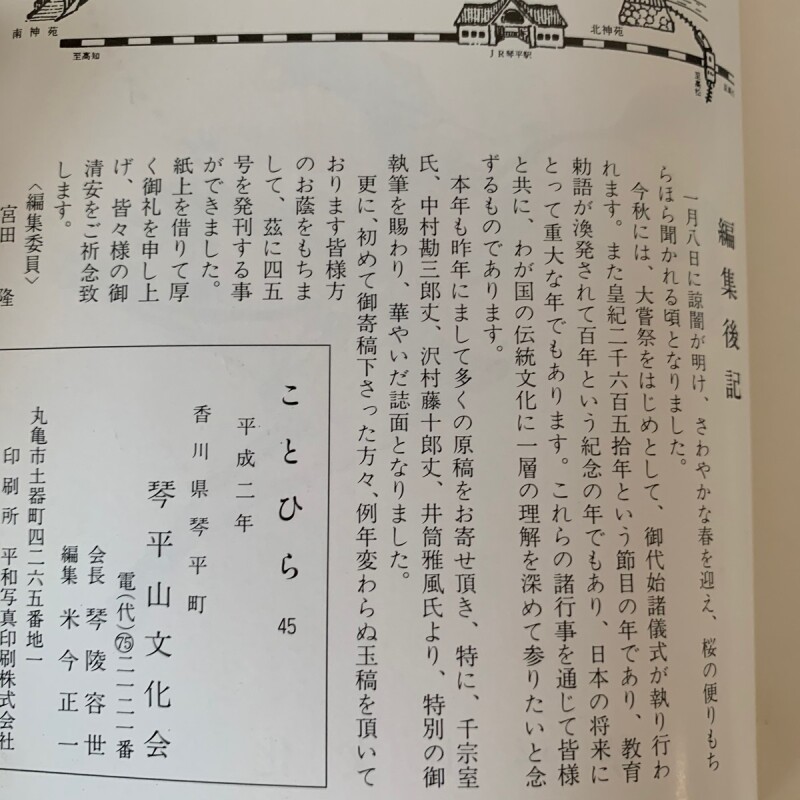 南神苑
至高知
JR琴平駅
北神苑
至高松
編集後記
一月八日に諒闇が明け、さわやかな春を迎え、桜の便りもち
らほら聞かれる頃となりました。
今秋には、大嘗祭をはじめとして、御代始諸儀式が執り行わ
れます。また皇紀二千六百五拾年という節目の年であり、教育
勅語が渙発されて百年という紀念の年でもあり、日本の将来に
とって重大な年でもあります。これらの諸行事を通じて皆様
と共に、わが国の伝統文化に一層の理解を深めて参りたいと念
ずるものであります。
本年も昨年にまして多くの原稿をお寄せ頂き、特に、千宗室
氏、中村勘三郎丈、沢村藤十郎丈、井筒雅風氏より、特別の御
執筆を賜わり、華やいだ誌面となりました。
更に、初めて御寄稿下さった方々、例年変わらぬ玉稿を頂いて
おります皆様方
のお蔭をもちま
して、茲に四五
号を発刊する事
ができました。
紙上を借りて厚
く御礼を申し上
げ、皆々様の御
清安をご祈念致
します。
〈編集委員〉
宮田 隆
ことひら 45
平成二年
香川県琴平町
琴平山文化会
電(代)㊆二一二一番
会長 琴陵容世
編集 米今正一
丸亀市土器町四二六五番地一
印刷所 平和写真印刷株式会社